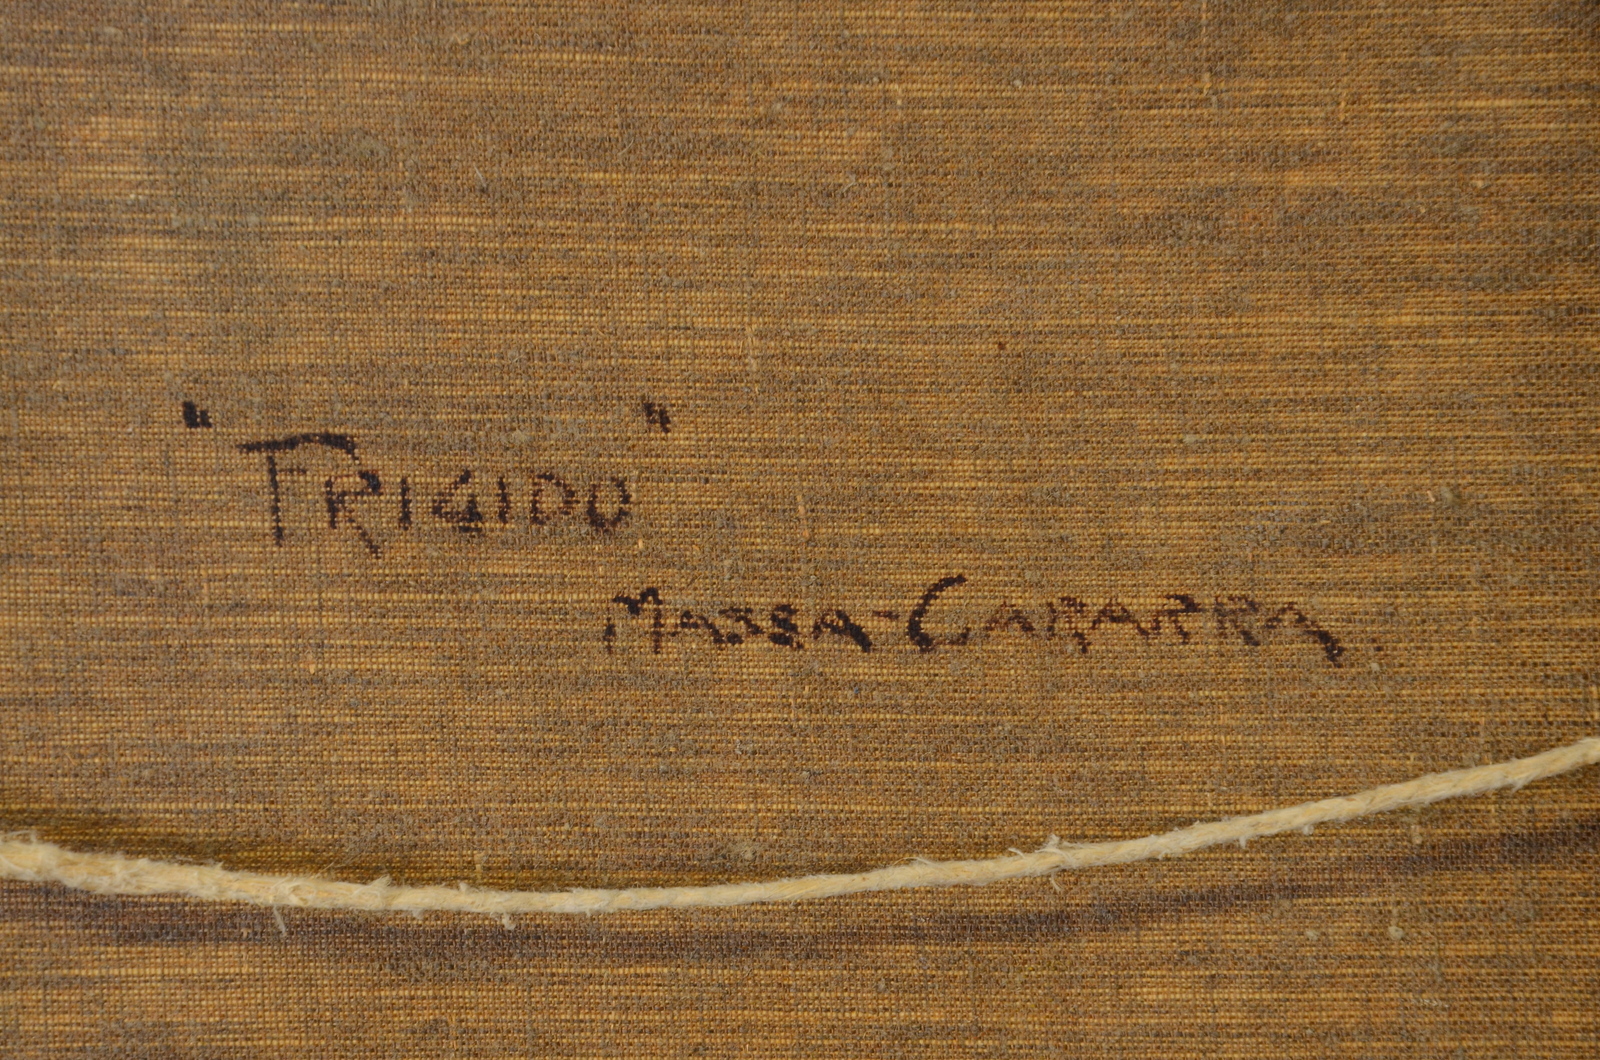 "FRIGIDO"
MASSA-CARARRA.